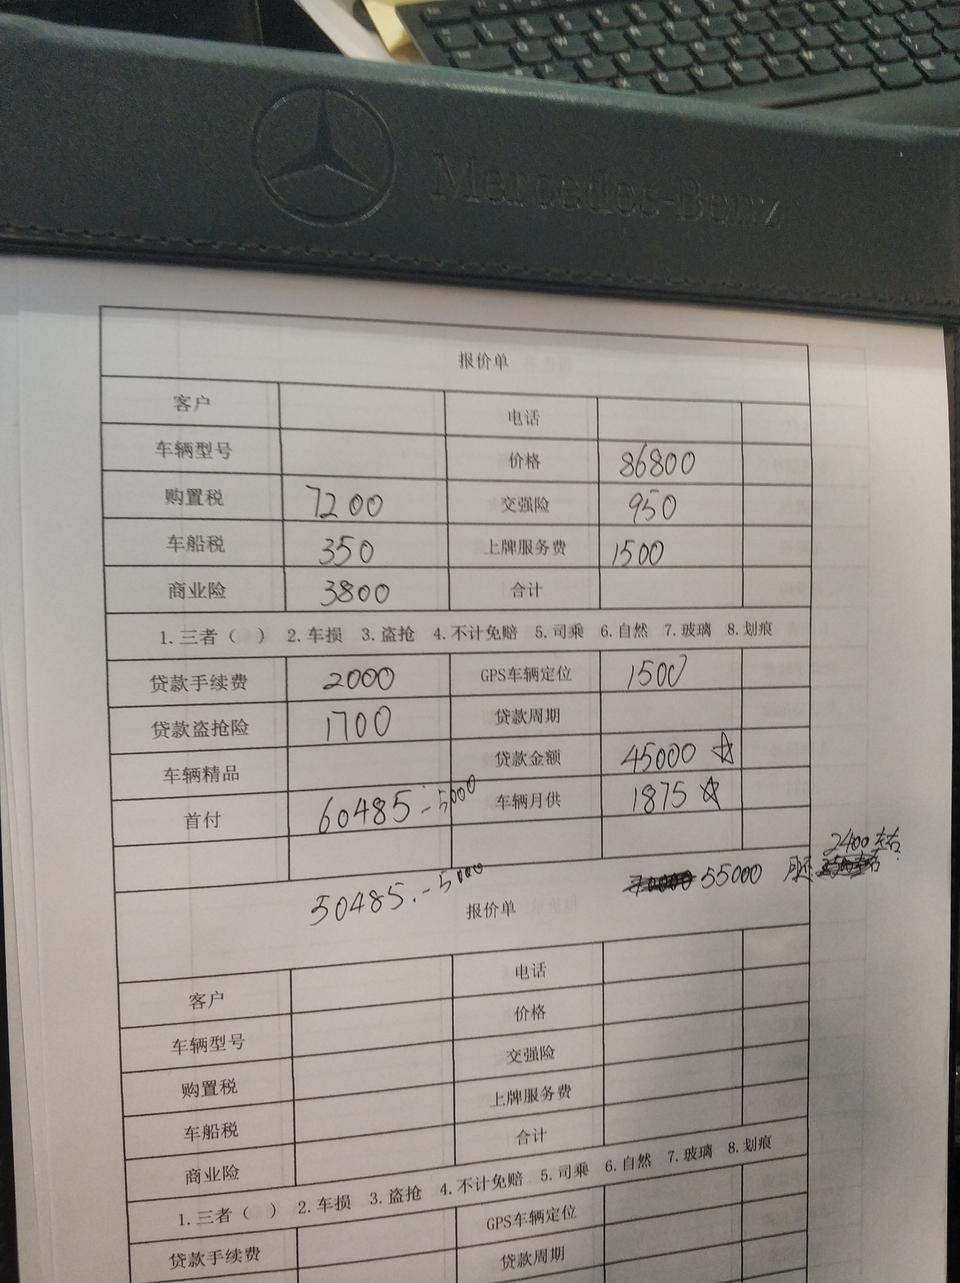 Mercedes-Benz
报价单
客户 电话
车辆型号 价格 86800
购置税 7200 交强险 950
车船税 350 上牌服务费 1500
商业险 3800 合计
1.三者（ ） 2.车损 3.盗抢 4.不计免赔 5.司乘 6.自然 7.玻璃 8.划痕
贷款手续费 2000 GPS车辆定位 1500
贷款盗抢险 1700 贷款周期
车辆精品 贷款金额 45000 ☆
首付 60485.-5000 车辆月供 1875 ☆
2400左右
50485.-5000 55000 月还
报价单
客户 电话
车辆型号 价格
购置税 交强险
车船税 上牌服务费
商业险 合计
1.三者（ ） 2.车损 3.盗抢 4.不计免赔 5.司乘 6.自然 7.玻璃 8.划痕
贷款手续费 GPS车辆定位
贷款周期